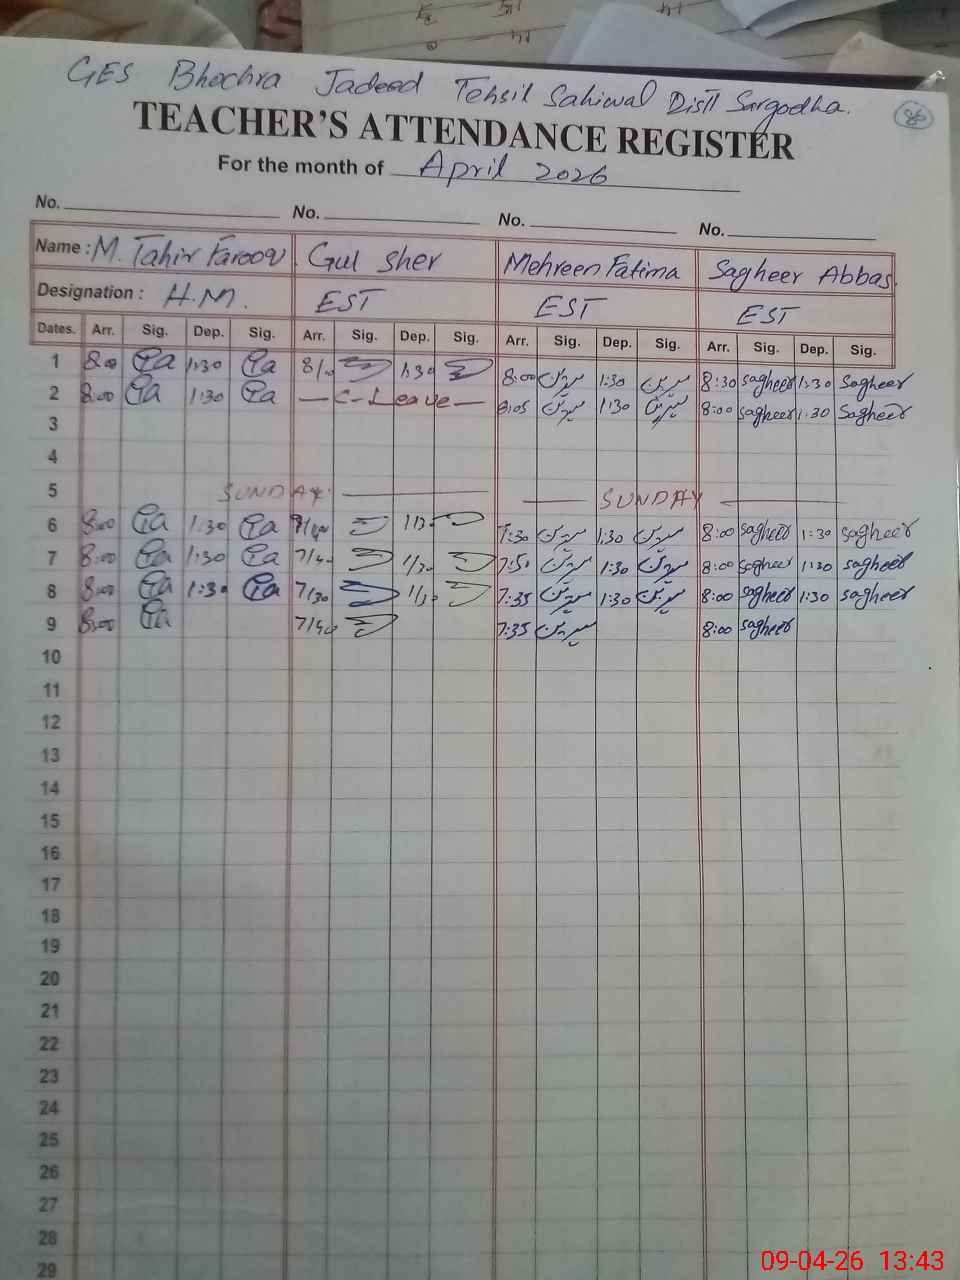 GES Bhochra Jadeed Tehsil Sahiwal Distt Sargodha.
86
TEACHER'S ATTENDANCE REGISTER
For the month of April 2026
No. No. No. No.
Name : M. Tahir Farooq Gul Sher Mehreen Fatima Sagheer Abbas
Designation : H.M. EST EST EST
Dates. Arr. Sig. Dep. Sig. Arr. Sig. Dep. Sig. Arr. Sig. Dep. Sig. Arr. Sig. Dep. Sig.
1 8:00 1:30 1:30 8:00 1:30 8:30 sagheer 1:30 Sagheer
2 8:00 1:30 — C-Leave — 8:05 1:30 8:00 sagheer 1:30 Sagheer
3
4
5 SUNDAY SUNDAY
6 8:00 1:30 7:30 1:30 8:00 sagheer 1:30 sagheer
7 8:00 1:30 7:50 1:30 8:00 sagheer 1:30 sagheer
8 8:00 1:30 7/30 1/30 7:35 1:30 8:00 sagheer 1:30 sagheer
9 8:00 7/40 7:35 8:00 sagheer
10
11
12
13
14
15
16
17
18
19
20
21
22
23
24
25
26
27
28
29
09-04-26 13:43